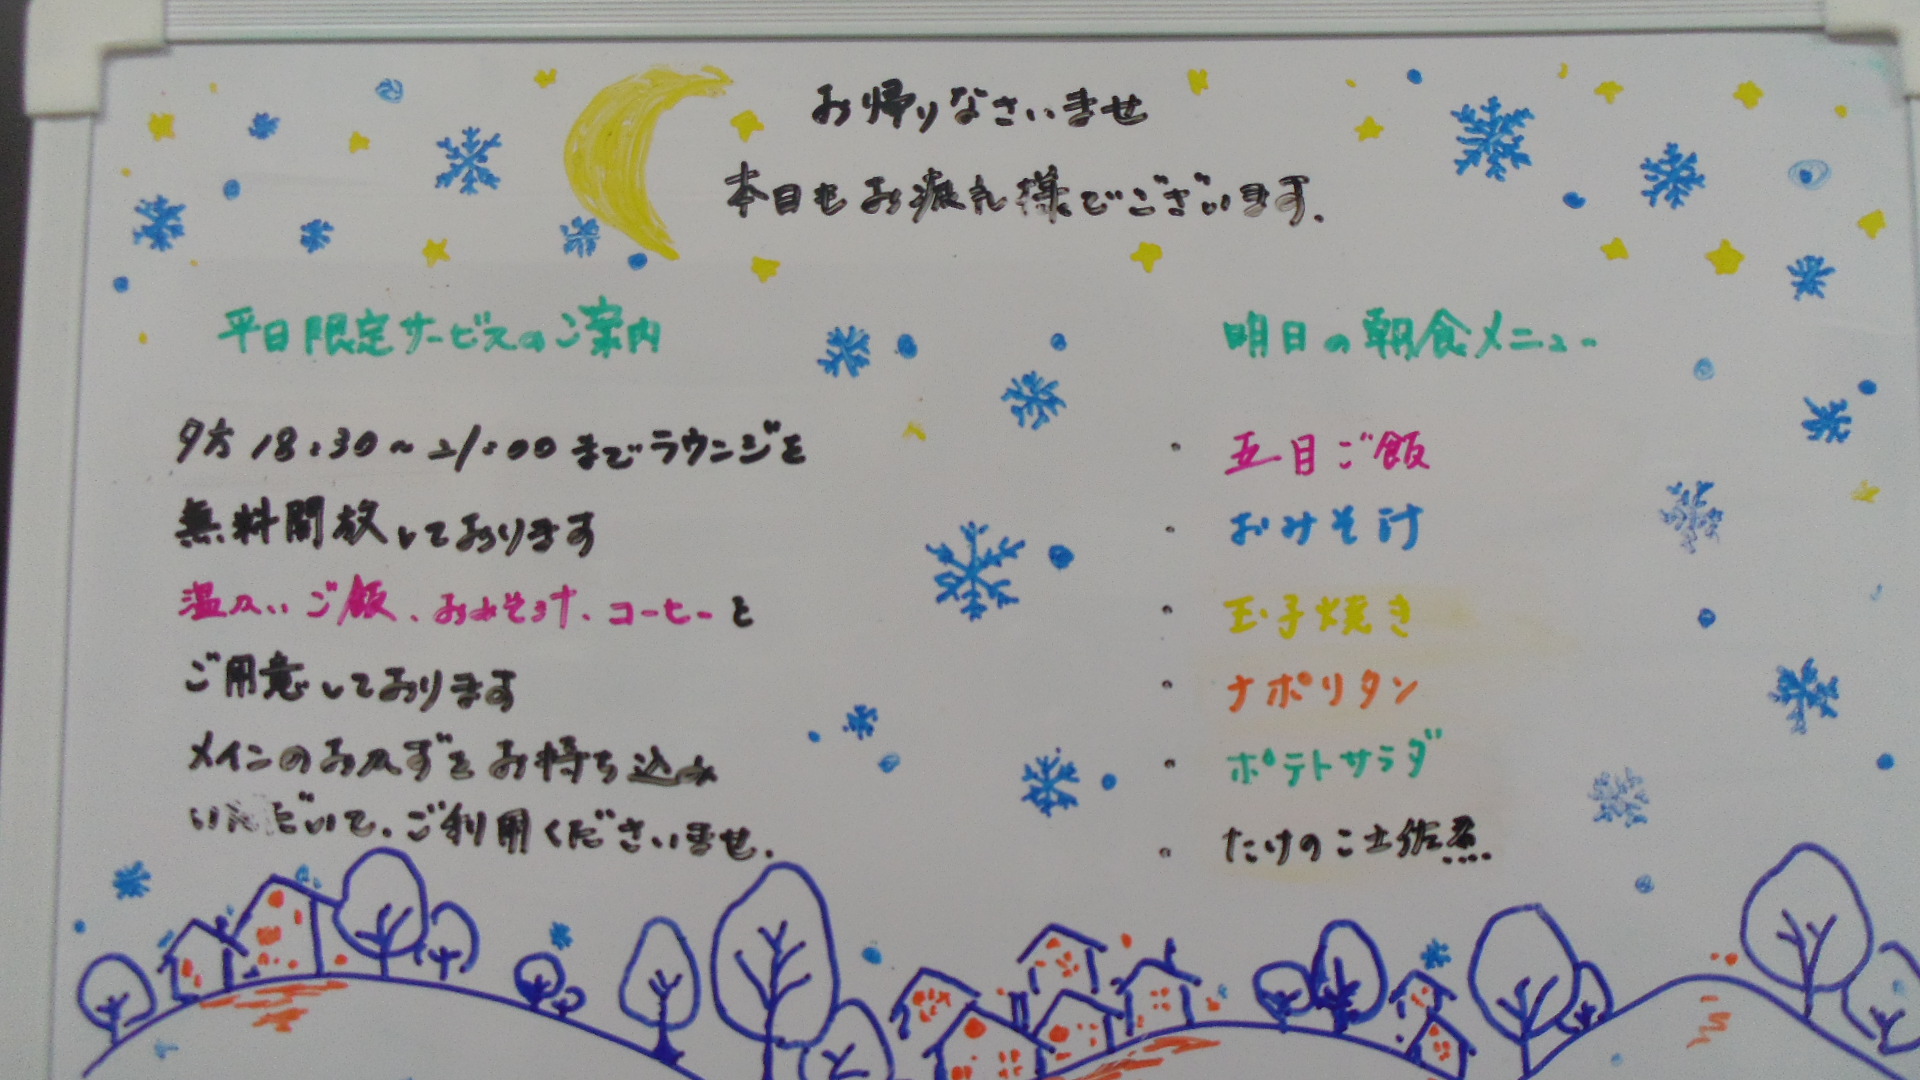 お帰りなさいませ
本日もお疲れ様でございます.
平日限定サービスのご案内
夕方 18:30~21:00 までラウンジを
無料開放しております
温かいご飯、おみそ汁、コーヒーと
ご用意しております
メインのおかずをお持ち込み
いただいて、ご利用くださいませ.
明日の朝食メニュー
・五目ご飯
・おみそ汁
・玉子焼き
・ナポリタン
・ポテトサラダ
・たけのこ土佐煮